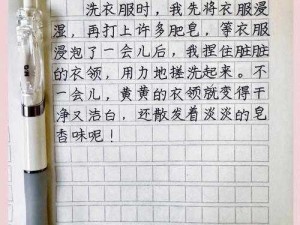 洗衣服时，我先将衣服浸
湿，再打上许多肥皂，等衣服
浸泡了一会儿后，我捏住脏脏
的衣领，用力地搓洗起来。不
一会儿，黄黄的衣领就变得干
净又洁白，还散发着淡淡的皂
香味呢！